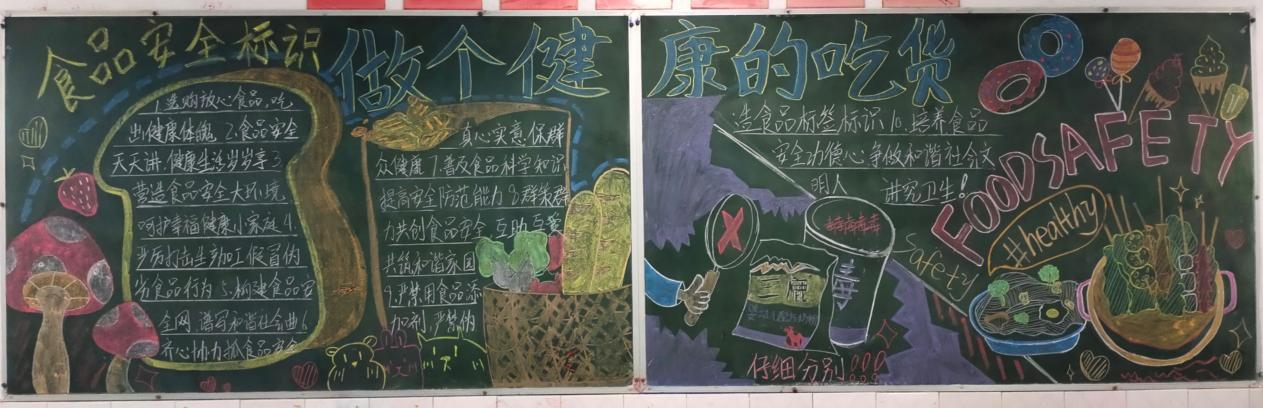 食品安全标识
做个健康的吃货
1.选购放心食品,吃
出健康体魄 2.食品安全
天天讲,健康生活岁岁享 3
营造食品安全大环境
呵护幸福健康小家庭 4.
步厉打击生劲工假冒伪
劣食品行为 5.构建食品安
全网,谱写和谐社会曲 6.
齐心协力抓食品安全
真心实意保群
众健康 7.普及食品科学知识
提高安全防范能力 8.群策群
力共创食品安全,互助互爱
共筑和谐家园
9.严禁用食品添
加剂,严禁伪
造食品标签标识 10.培养食品
安全功德心,争做和谐社会文
明人
讲究卫生!
FOODSAFETY
#healthy
Safety
毒毒毒毒毒
仔细分别!!!